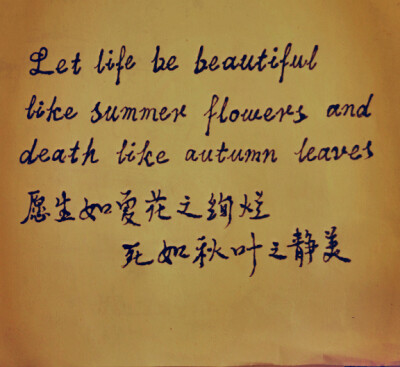 Let life be beautiful
like summer flowers and
death like autumn leaves
愿生如夏花之绚烂
死如秋叶之静美